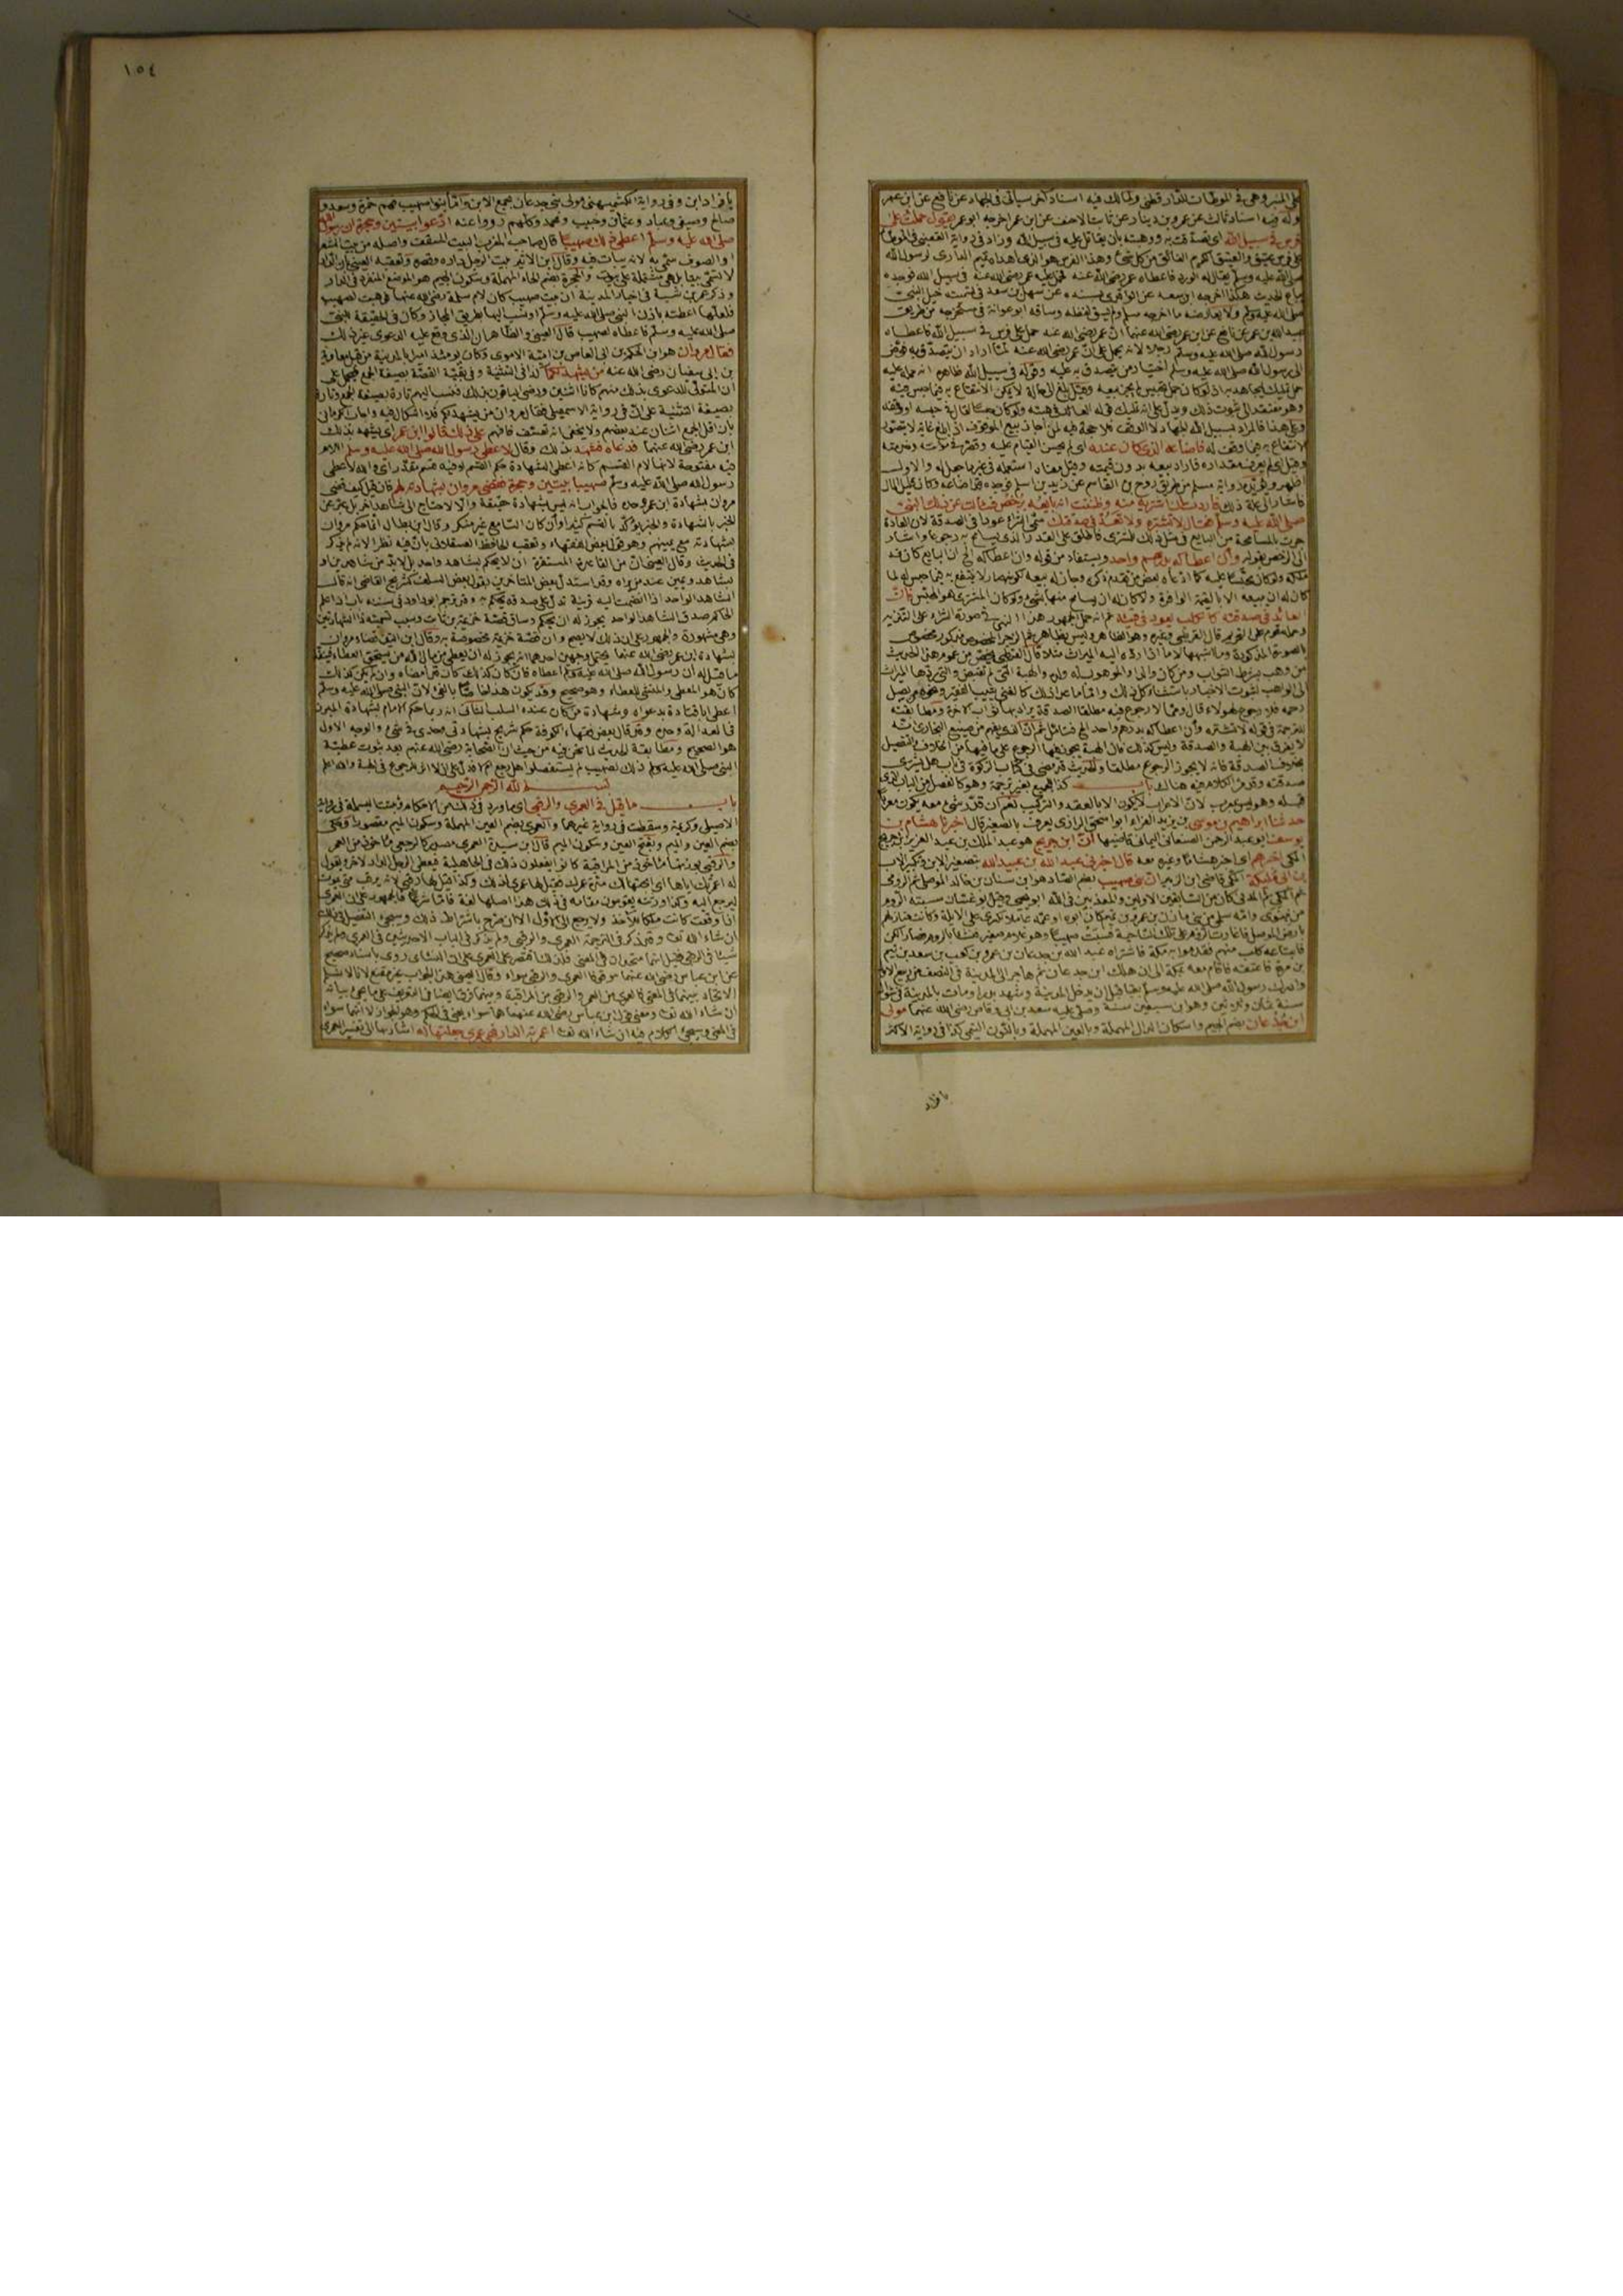 على المنبر وهى فى الموطآت للدار قطنى ولمالك فيه اسناد آخر سيأتى فى الجهاد عن نافع عن ابن عمر
وله فيه اسناد ثالث عن عمرو بن دينار عن ثابت الاحنف عن ابن عمر اخرجه ابو عمر يقول حملت على
فرس فى سبيل الله اى تصدقت به ووهبته بأن يقاتل عليه فى سبيل الله وزاد فى رواية القعنبى فى الموطأ
على فرس عتيق والعتيق الكريم الفائق من كل شئ وهذا الفرس هو الذى اهداه تميم الدارى لرسول الله
صلى الله عليه وسلم يقال له الورد فاعطاه عمر رضى الله عنه فحمل عليه عمر رضى الله عنه فى سبيل الله فوجده
يباع الحديث هكذا اخرجه ابن سعد عن الواقدى بسنده عن سهل بن سعد فى تسمية خيل النبى
صلى الله عليه وسلم ولا يعارضه ما اخرجه مسلم ولم يسق لفظه وساقه ابو عوانة فى مستخرجه من طريق
عبيد الله بن عمر عن نافع عن ابن عمر رضى الله عنهما ان عمر رضى الله عنه حمل على فرس فى سبيل الله فاعطاه
رسول الله صلى الله عليه وسلم رجلا لانه يحمل على ان عمر رضى الله عنه لما اراد ان يتصدق به فوض
الى رسول الله صلى الله عليه وسلم اختيار من يتصدق به عليه وقوله فى سبيل الله ظاهره انه حمله عليه
حمل تمليك ليجاهد به اذ لو كان حمل تحبيس لم يجز بيعه وقيل بلغ الى حالة لا يمكن الانتفاع به فيما حبس فيه
وهو مفتقر الى ثبوت ذلك ويدل على انه تمليك قوله العائد فى هبته ولو كان حبسا لقال فى حبسه او وقفه
وعلى هذا فالمراد بسبيل الله الجهاد لا الوقف فلا حجة فيه لمن اجاز بيع الموقوف اذا بلغ غاية لا يتصور
الانتفاع به فيما وقف له فاضاعه الذى كان عنده اى لم يحسن القيام عليه وقصر فى مؤنته وخدمته
وقيل اى لم يعرف مقداره فاراد بيعه بدون قيمته وقيل معناه استعمله فى غير ما جعل له والاول
اظهر ويؤيده رواية مسلم من طريق روح بن القاسم عن زيد بن اسلم فوجده قد اضاعه وكان قليل المال
فاشار الى علة ذلك فاردت ان اشتريه منه وظننت انه بايعه برخص فسألت عن ذلك النبى
صلى الله عليه وسلم فقال لا تشتره ولا تعد فى صدقتك سمى الشراء عودا فى الصدقة لان العادة
جرت بالمسامحة من البايع فى مثل ذلك للمشترى فاطلق على القدر الذى يسامح به رجوعا واشار
الى الرخص بقوله وان اعطاكه بدرهم واحد ويستفاد من قوله وان اعطاكه الخ ان البايع كان قد
ملكه ولو كان محبسا عليه كما ادعاه بعض من تقدم ذكره وجاز له بيعه لكونه صار لا ينتفع به فيما حبس له لما
كان له ان يبيعه الا بالقيمة الوافرة ولا كان له ان يسامح منها بشئ ولو كان المشترى هو المحبس فان
العائد فى صدقته كالكلب يعود فى قيئه ثم انه حمل الجمهور هذا النهى فى صورة الشراء على التنزيه
وحمله قوم على التحريم قال القرطبى وغيره وهو الظاهر وليس بظاهر ثم الزجر المخصوص مذكور مخصوص
بالصورة المذكورة وما اشبهها لا ما اذا رده اليه الميراث مثلا قال الطبرى يخص من عموم هذا الحديث
من وهب بشرط الثواب ومن كان والدا والموهوب له ولده والهبة التى لم تقبض والتى ردها الميراث
الى الواهب لثبوت الاخبار باستثناء كل ذلك واما ما عدا ذلك كالغنى يثيب الفقير ونحو من يصل
رحمه فلا رجوع لهؤلاء قال ومما لا رجوع فيه مطلقا الصدقة يراد بها ثواب الاخرة ومطابقته
للترجمة فى قوله لا تشتره وان اعطاكه بدرهم واحد الخ فتأمل ثم ان الذى يفهم من صنيع البخارى انه
لا يفرق بين الهبة والصدقة وليس كذلك فان الهبة يجوز فيها الرجوع على ما فيها من الخلاف والتفصيل
بخلاف الصدقة فانه لا يجوز الرجوع مطلقا والحديث قد مضى فى كتاب الزكوة فى باب هل يشترى
صدقته وقد مر الكلام فيه هناك باب كذا للجميع بغير ترجمة وهو كالفصل من الباب الذى
قبله وهو ليس بمعرب لان الاعراب لا يكون الا بالعقد والتركيب نعم ان قدر شئ معه يكون معربا
حدثنا ابراهيم بن موسى بن يزيد الفراء ابو اسحق الرازى يعرف بالصغير قال اخبرنا هشام بن
يوسف ابو عبد الرحمن الصنعانى اليمانى قاضيها ان ابن جريج هو عبد الملك بن عبد العزيز ابن جريج
المكى اخبرهم اى اخبر هشاما وغيره معه قال اخبرنى عبد الله بن عبيد الله بتصغير الابن وتكبير الاب
بن ابى مليكة المكى قاضى ابن الزبير ان بنى صهيب بضم الصاد هو ابن سنان بن خالد الموصلى ثم الرومى
ثم المكى ثم المدنى كان من السابقين الاولين والمعذبين فى الله ابو يحيى وقيل ابو غسان سبته الروم
من نينوى وامه سلمى من بنى مازن بن عمرو بن تميم كان ابوه او عمه عاملا لكسرى على الابلة وكانت منازلهم
بارض الموصل فاغارت الروم على تلك الناحية فسبت صهيبا وهو غلام صغير فنشأ بالروم فصار الكن
فابتاعه كلب منهم فقدموا به مكة فاشتراه عبد الله بن جدعان بن عمرو بن كعب بن سعد بن تيم
بن مرة فاعتقه فاقام معه بمكة الى ان هلك ابن جدعان ثم هاجر الى المدينة فى النصف من ربيع الاول
وادرك رسول الله صلى الله عليه وسلم بقبا قبل ان يدخل المدينة وشهد بدرا ومات بالمدينة فى شوال
سنة ثمان وثلاثين وهو ابن سبعين سنة وصلى عليه سعد بن ابى وقاص رضى الله عنهما مولى
ابن جدعان بضم الجيم واسكان الدال المهملة وبالعين المهملة وبالنون التيمى كذا فى رواية الاكثر
بافراد
١٥٤
بافراد ابن وفى رواية الكشميهنى مولى بنى جدعان بجمع الابن واما بنو صهيب فهم حمزة وسعد و
صالح وصيفى وعباد وعثمان وحبيب ومحمد وكلهم رووا عنه ادعوا بيتين وحجرة ان رسول الله
صلى الله عليه وسلم اعطى ذلك صهيبا قال صاحب المغرب البيت المسقف واصله من بيت الشعر
او الصوف سمى به لانه يبات فيه وقال ابن الاثير بيت الرجل داره وقصره وتعقبه العينى بان الدار
لا تسمى بيتا بل هى مشتملة على بيوت والحجرة بضم الحاء المهملة وسكون الجيم هو الموضع المنفرد فى الدار
وذكر عمر بن شبة فى اخبار المدينة ان بيت صهيب كان لام سلمة رضى الله عنها فوهبت لصهيب
فلعلها اعطته باذن النبى صلى الله عليه وسلم او نسب اليها بطريق المجاز وكان فى الحقيقة للنبى
صلى الله عليه وسلم فاعطاه لصهيب قال العينى والظاهر ان الذى وقع عليه الدعوى غير ذلك
فقال مروان هو ابن الحكم بن ابى العاص بن امية الاموى وكان يومئذ امير المدينة من قبل معاوية
بن ابى سفيان رضى الله عنه من يشهد لكما كذا فى التثنية وفى بقية القصة بصيغة الجمع فيحمل على
ان المتولى للدعوى بذلك منهم كانا اثنين ورضى الباقون بذلك فنسب اليهم تارة بصيغة الجمع وتارة
بصيغة التثنية على ان فى رواية الاسمعيلى فقال مروان من يشهد لكم فلا اشكال فيه واجاب الكرمانى
بان اقل الجمع اثنان عند بعضهم ولا يخفى انه تعسف فافهم على ذلك قالوا ابن عمر اى يشهد بذلك
ابن عمر رضى الله عنهما فدعاه فشهد بذلك وقال لاعطى رسول الله صلى الله عليه وسلم اللام
فيه مفتوحة لانها لام القسم كانه اعطى الشهادة حكم القسم او فيه قسم مقدر اى والله لاعطى
رسول الله صلى الله عليه وسلم صهيبا بيتين وحجرة فقضى مروان بشهادته لهم فان قيل كيف قضى
مروان بشهادة ابن عمر وحده فالجواب انه ليس بشهادة حقيقة والا لاحتاج الى شاهد اخر بل عبر عن
الخبر بالشهادة والخبر يؤكد بالقسم كثيرا وان كان السامع غير منكر وقال ابن بطال انما حكم مروان
بشهادته مع يمينهم وهو قول بعض الفقهاء وتعقبه الحافظ العسقلانى بان فيه نظر الانه لم يذكر
فى الحديث وقال العينى ان من القاعدة المستقرة ان لا يحكم بشاهد واحد بل لا بد من شاهدين او
بشاهد ويمين عند من يراه وقد استدل بعض المتأخرين بقول بعض السلف كشريح القاضى انه قال
الشاهد الواحد اذا انضمت اليه قرينة تدل على صدقه يحكم به وقد ترجم ابو داود فى سننه باب اذا علم
الحاكم صدق الشاهد الواحد يجوز له ان يحكم وساق قصة خزيمة بن ثابت وسبب تسميته ذا الشهادتين
وهى مشهورة والجمهور على ان ذلك لا يصح وان قصة خزيمة مخصوصة به وقال ابن التين قضاء مروان
بشهادة ابن عمر رضى الله عنهما يحتمل وجهين احدهما انه يجوز له ان يعطى من مال الله من يستحق العطاء فينفذ
ما قيل له ان رسول الله صلى الله عليه وسلم اعطاه فان كان كذلك كان قد امضاه وان لم يكن كذلك
كان هو المعطى والمنشئ للعطاء وهو صحيح وقد يكون هذا خاصا بالفئ لان النبى صلى الله عليه وسلم
اعطى ابا قتادة بدعواه وشهادة من كان عنده السلب الثانى انه ربما حكم الامام بشهادة المبرز
فى العدالة وحده وقد قال بعض فقهاء الكوفة حكم شريح بشهادتى وحدى فى شئ والوجه الاول
هو الصحيح ومطابقة الحديث لما نحن فيه من حيث ان الصحابة رضى الله عنهم بعد ثبوت عطية
النبى صلى الله عليه وسلم ذلك لصهيب لم يستفصلوا هل رجع ام لا فدل على ان لا اثر للرجوع فى الهبة والله اعلم
بسم الله الرحمن الرحيم
باب ما قيل فى العمرى والرقبى اى ما ورد فى ذلك من الاحكام وثبتت البسملة فى رواية
الاصيلى وكريمة وسقطت فى رواية غيرهما والعمرى بضم العين المهملة وسكون الميم مقصورا وحكى
بضم العين والميم وبفتح العين وسكون الميم قال ابن سيدة العمرى مصدر كالرجعى مأخوذ من العمر
والرقبى بوزنها مأخوذ من المراقبة كانوا يفعلون ذلك فى الجاهلية فيعطى الرجل الدار لاخر ويقول
له اعمرتك اياها اى ابحتها لك مدة عمرك فقيل لها عمرى لذلك وكذا قيل لها رقبى لانه يرقب متى يموت
ليرجع اليه وكذا ورثته يقومون مقامه فى ذلك هذا اصلها لغة فاما شرعا فالجمهور على ان العمرى
اذا وقعت كانت ملكا للآخذ ولا يرجع الى الاول الا ان صرح باشتراط ذلك وسيجئ التفصيل فى ذلك
ان شاء الله تعا وقد ذكر فى الترجمة العمرى والرقبى ولم يذكر فى الباب الا حديثين فى العمرى ولم يذكر
شيئا فى الرقبى فقيل انهما متحدان فى المعنى فلذلك اقتصر على العمرى على ان النسائى روى باسناد صحيح
عن ابن عباس رضى الله عنهما موقوفا العمرى والرقبى سواء وقال العينى هذا الجواب غير مقنع لانا لا نسلم
الاتحاد بينهما فى المعنى فالعمرى من العمر والرقبى من المراقبة وبينهما فرق ايضا فى التعريف على ما يجئ بيانه
ان شاء الله تعا ومعنى قول ابن عباس رضى الله عنهما هما سواء يعنى فى الحكم وهو الجواز لا انهما سواء
فى المعنى وسيجئ الكلام فيه ان شاء الله تعا اعمرته الدار فهى عمرى جعلتها له اشار بهذا الى تفسير العمرى